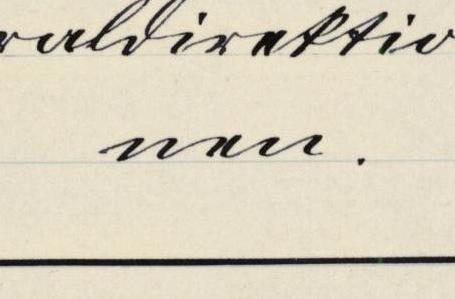 raldirektio
nen.